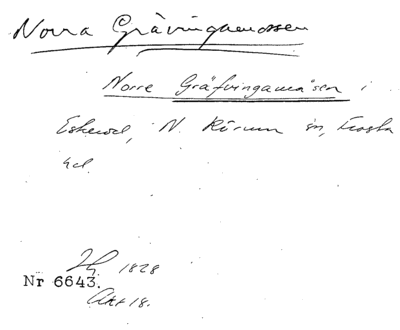 Norra Grävingamossen
Norre Gräfvingamåsen i
Eskerod, N. Rörum sn, Frosta
hd.
1828
Nr 6643.
Akt 18.